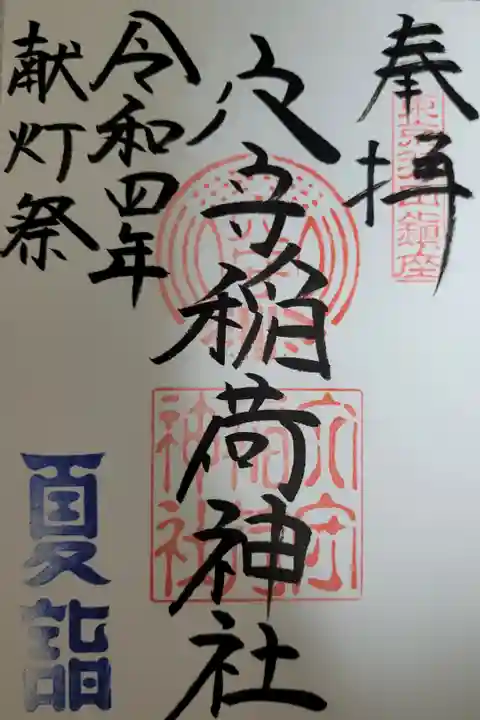 奉拝
東京羽田鎮座
穴守稲荷神社
穴守稲荷神社
令和四年
献灯祭
夏詣